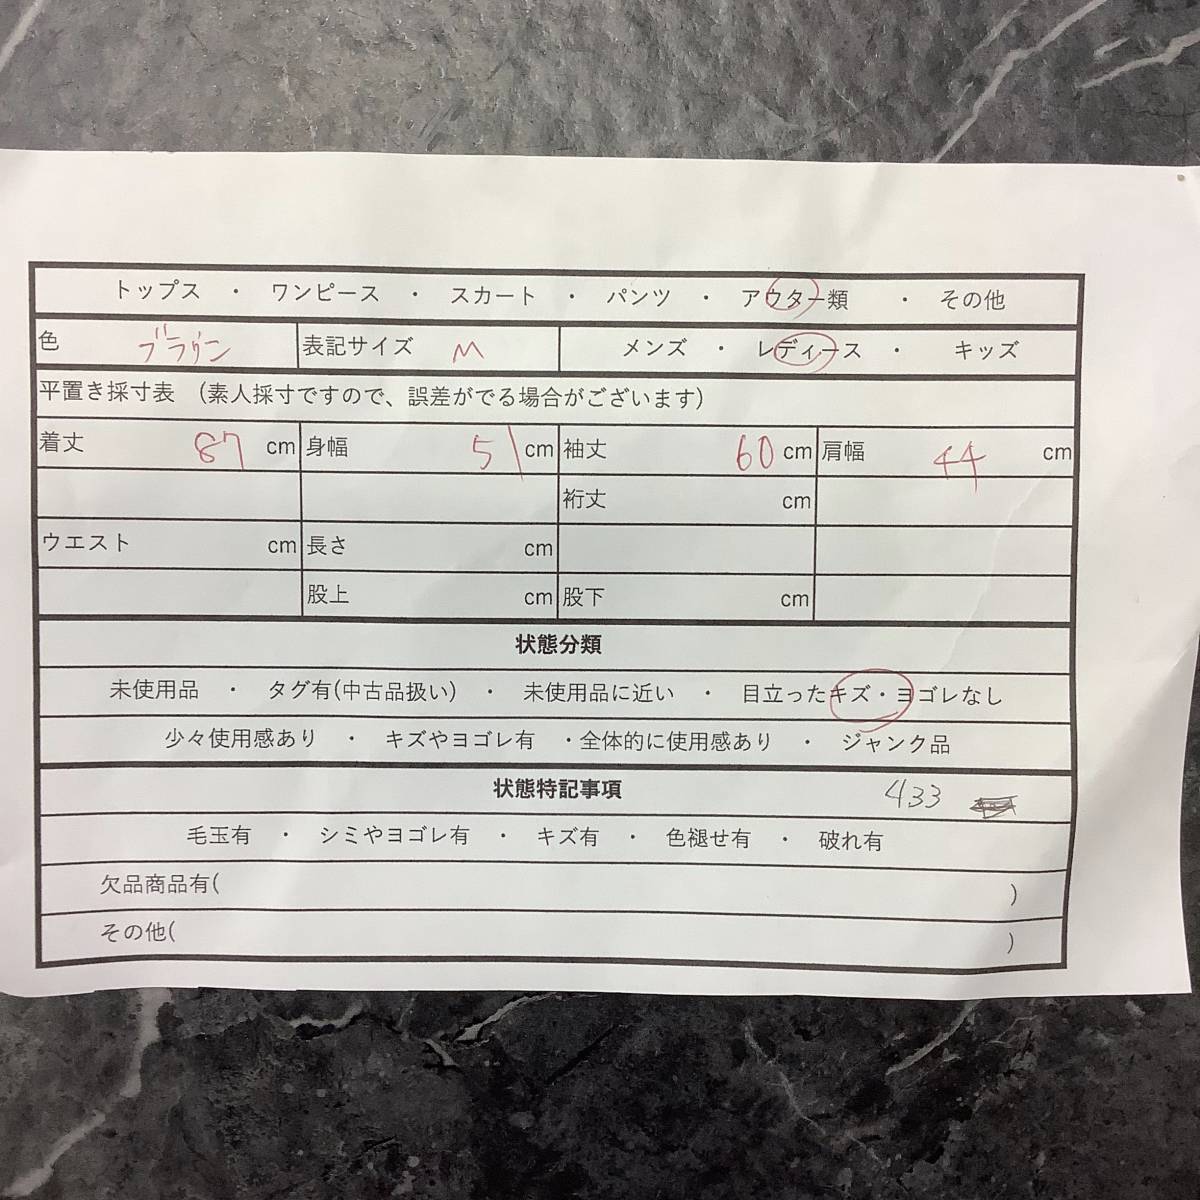 トップス ・ ワンピース ・ スカート ・ パンツ ・ アウター類 ・ その他
色 ブラウン 表記サイズ M メンズ ・ レディース ・ キッズ
平置き採寸表 (素人採寸ですので、誤差がでる場合がございます)
着丈 87 cm 身幅 51 cm 袖丈 60 cm 肩幅 44 cm
裄丈 cm
ウエスト cm 長さ cm
股上 cm 股下 cm
状態分類
未使用品 ・ タグ有(中古品扱い) ・ 未使用品に近い ・ 目立ったキズ・ヨゴレなし
少々使用感あり ・ キズやヨゴレ有 ・全体的に使用感あり ・ ジャンク品
状態特記事項 433
毛玉有 ・ シミやヨゴレ有 ・ キズ有 ・ 色褪せ有 ・ 破れ有
欠品商品有( )
その他( )